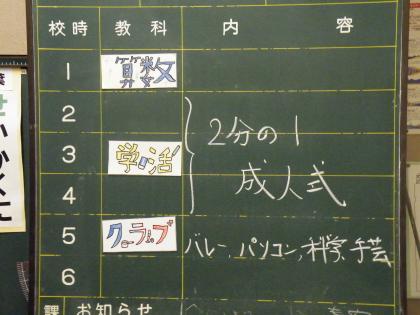 校時 教科 内容
1 算数
2
3 学活 2分の1
4 成人式
5 クラブ バレー、パソコン、科学、手芸
6
お知らせ